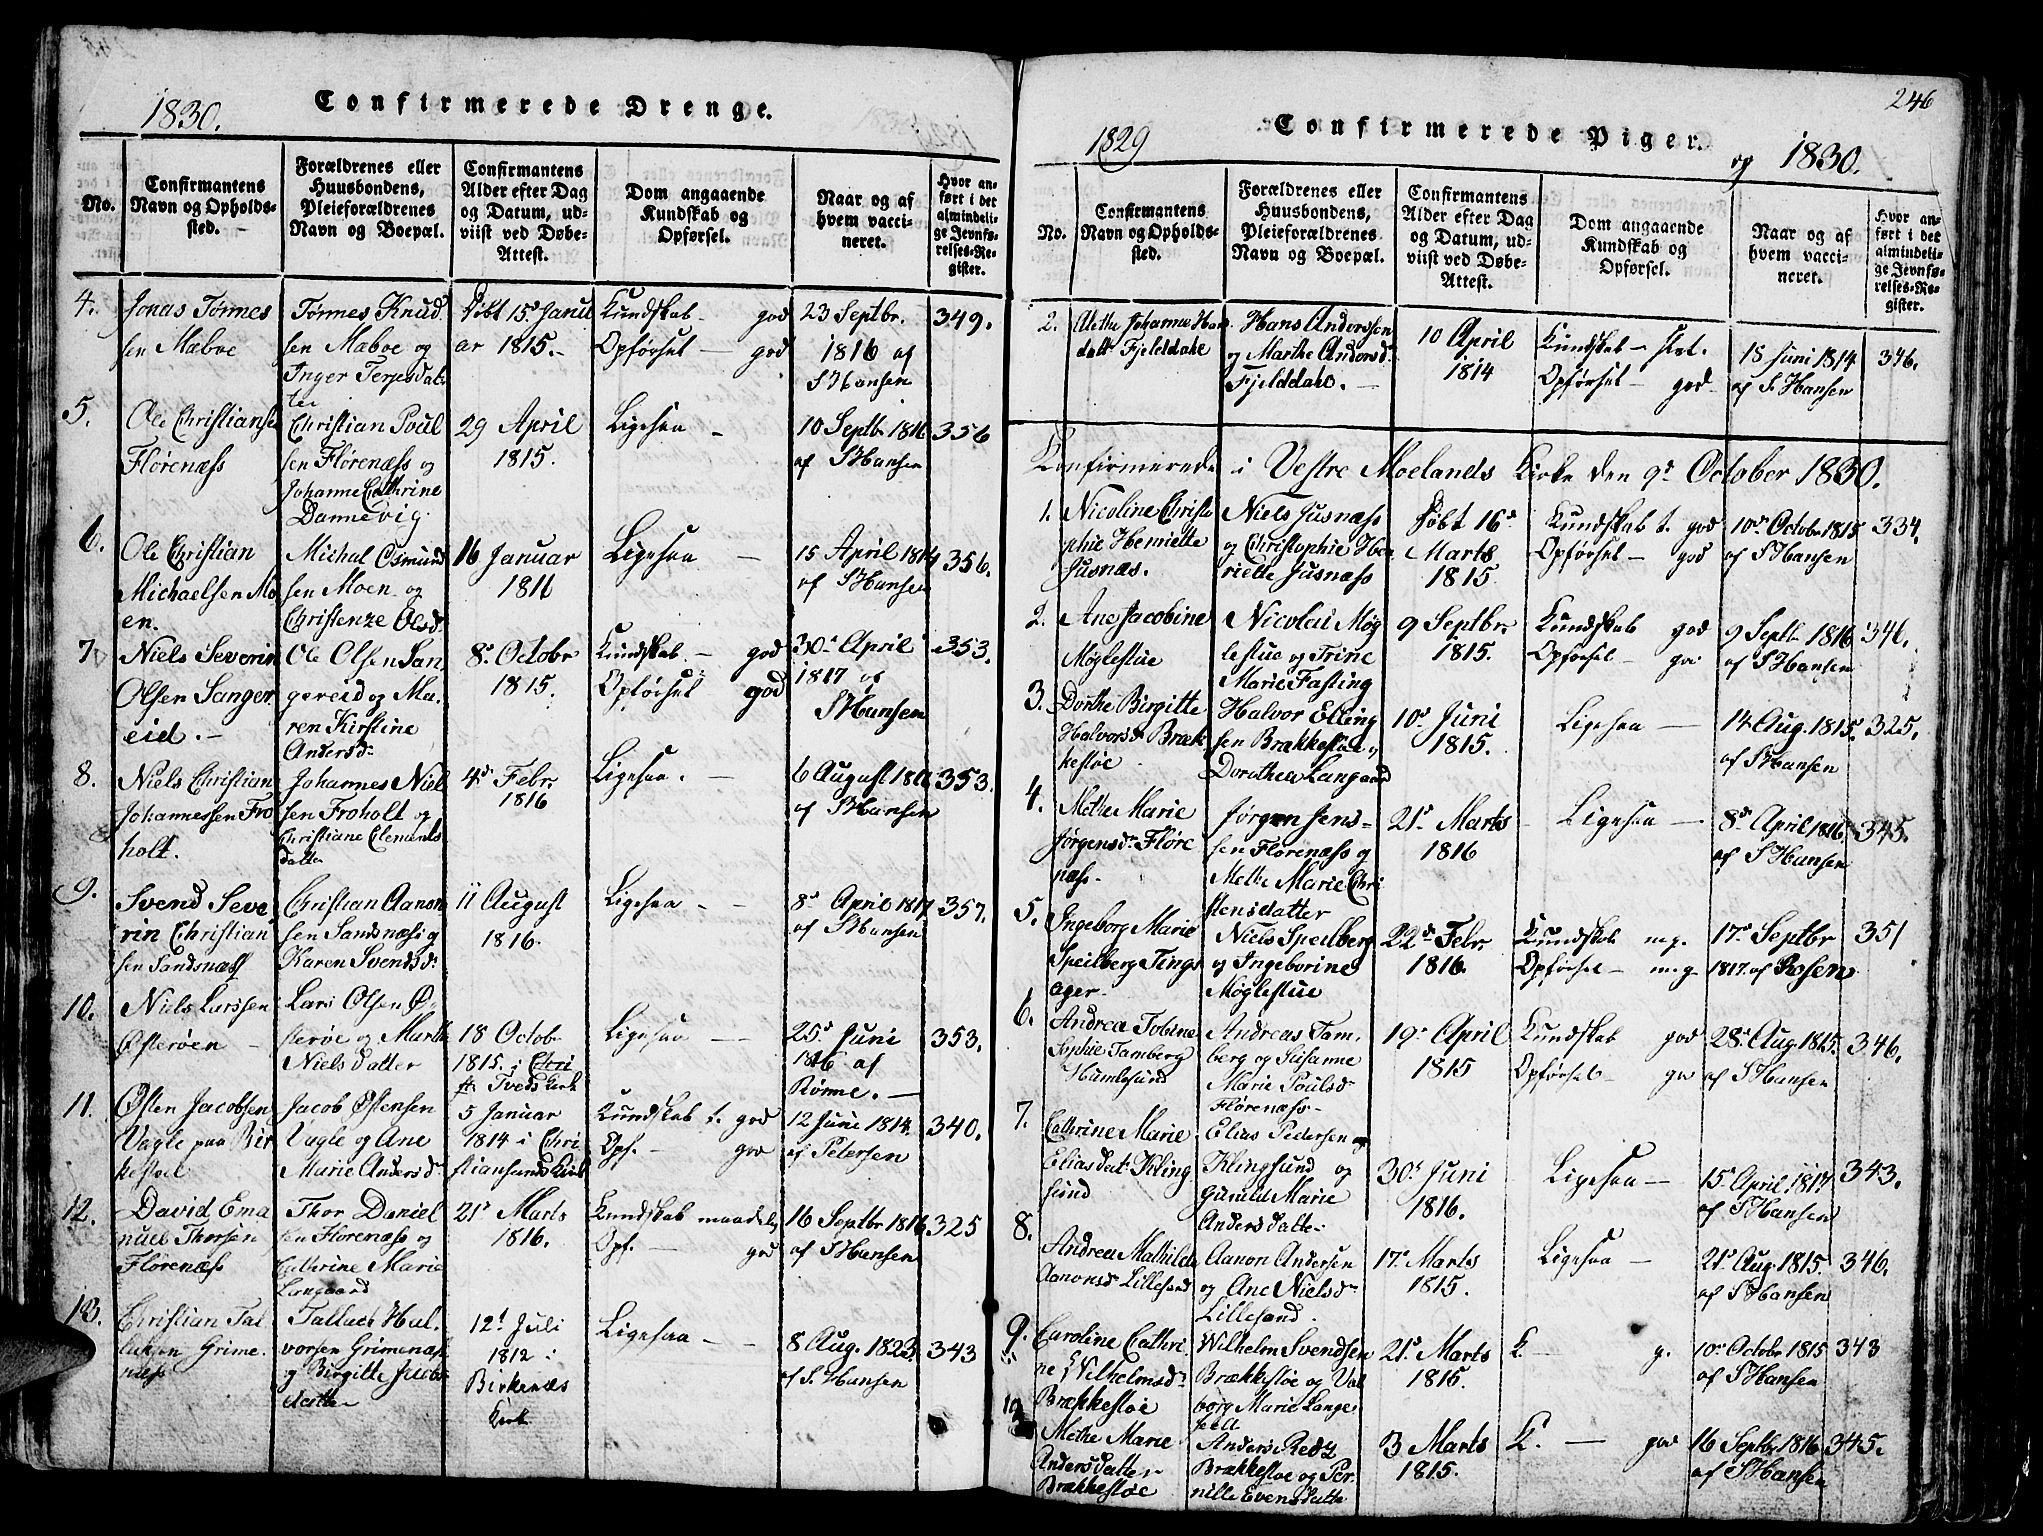 1830.
Confirmerede Drenge.
No.
Confirmantens
Navn og Opholds-
sted.
Forældrenes eller
Huusbondens,
Pleieforældrenes
Navn og Boepæl.
Confirmantens
Alder efter Dag
og Datum, ud-
viist ved Døbe-
Attest.
Dom angaaende
Kundskab og
Opførsel.
Naar og af
hvem vacci-
neret.
Hvor an-
ført i det
almindeli-
ge Jevnfø-
relses-Re-
gister.
4.
Jonas Tønnes
sen Mæbøe
Tønnes Knud
sen Mæbøe og
Inger Terjesdat
ter
Døbt 15de Janu
ar 1815.
Kundskab - god
Opførsel - god
23 Septbr.
1816 af
S Hansen
349.
5.
Ole Christiansen
Florenæss
Christian Poul
sen Florenæss og
Johanne Cathrine
Dannevig.
29 April
1815.
Ligesaa
10 Septbr 1816
af S Hansen
356
6.
Ole Christian
Michaelsen Mo
en.
Michal Osmund
sen Moen og
Christenze Olsd.
16 Januar
1811
Ligesaa
15 April 1814
af S Hansen
356.
7.
Niels Severin
Olsen Sanger
eid.
Ole Olsen San
gereid og Ma
ren Kirstine
Andersd.
8. Octobr
1815.
Kundskab - god
Opførsel god
30. April
1817 af
S Hansen
353.
8.
Niels Christian
Johannessen Fro
holt.
Johannes Niel
sen Froholt og
Christiane Clements
datter
4d Febr.
1816
Ligesaa.
6 August
af S Hansen
353.
9.
Svend Seve
rin Christian
sen Sandsnæss
Christian Aanon
sen Sandsnæss og
Karen Svendsd.
11 August
1816.
Ligesaa
8d April 1817
af S Hansen
357.
10.
Niels Larssen
Østerøen
Lars Olsen Ø
sterøe og Marth
Nielsdatter
18 Octob
1815. i Chri
Tveds Kirk
Ligesaa
25d Juni
1816 af
Rønne.
353.
11.
Østen Jacobsen
Vagle paa Bir
kestøel
Jacob Østensen
Vagle og Ane
Marie Andersd
5 Januar
1814 i Chri
stiansunds Kirk
Kundskab t. god
Opf. - god
12 Juni 1814.
af Petersen
340.
12.
David Ema
nuel Thorsen
Florenæss
Thor Daniel
sen Florenæss og
Cathrine Marie
Langaard
21d Marts
1816.
Kundskab maadel.
Opf. - god
16 Septbr 1816
af S Hansen
325
13.
Christian Tal
laksen Grime
næss
Tallach Hal
vorsen Grimenæs
og Birgitte Jacobs
datter
12t Juli
1812 :
Birkenæs
Kirk
Ligesaa
8 Aug. 1823.
af S. Hansen
343
246
1829
Confirmerede Piger.
og 1830.
No.
Confirmantens
Navn og Opholds-
sted.
Forældrenes eller
Huusbondens,
Pleieforældrenes
Navn og Boepæl.
Confirmantens
Alder efter Dag
og Datum, ud-
viist ved Døbe-
Attest.
Dom angaaende
Kundskab og
Opførsel.
Naar og af
hvem vacci-
neret.
Hvor an-
ført i det
almindeli-
ge Jevnfø-
relses-Re-
gister.
2.
Alethe Johanne Hans
datt Fjelddale
Hans Anderssen
og Marthe Andersd.
Fjelddale.
10 April
1814
Kundskab - slet.
Opførsel - god
18 Juni 1814
af S. Hansen
346.
Konfirmerede i Vestre Moelands Kirke den 9d October 1830.
1.
Nicoline Christo
phie Henriette
Jusnæs.
Niels Jusnæss
og Christophie Hen
riette Jusnæss
Døbt 16d
Marts
1815.
Kundskab t. god
Opførsel - god
10d Octobr 1815
af S Hansen
334.
2.
Ane Jacobine
Møglestue
Nicolai Møg
lestue og Trine
Marie Fasting
9 Septbr.
1815.
Kundskab god
Opførsel - god
9 Septbr 1816
af S Hansen
346.
3.
Dorthe Birgitte
Halvorsd. Bræk
kestøe
Halvor Elling
sen Brækkestøe og
Dorothea Langaard
10d Juni
1815.
Ligesaa
14 Aug. 1815.
af S Hansen
325.
4.
Methe Marie
Jørgensd. Flore
næss.
Jørgen Jens-
sen Florenæss og
Methe Marie Chri
stensdatter
21d Marts
1816
Ligesaa
8d April 1816.
af S Hansen
345.
5.
Ingeborg Marie
Speilberg Tings
ager.
Niels Speilberg
og Ingeborine
Møglestue
22d Febr
1816.
Kundskab m.g.
Opførsel - m.g
17d Septbr
1817. af Rosen
351
6.
Andrea Tobine
Sophie Tamberg
Humlesund
Andreas Tam-
berg og Susanne
Marie Poulsd.
Florenæss
19d April
1815
Kundskab god
Opførsel - god
28d Aug 1815.
af S Hansen
346.
7.
Cathrine Marie
Eliasdat. Kling
sund
Elias Pedersen
Klingsund og
Gunild Marie
Andersdatter
30d Juni
1816.
Ligesaa
15 April 1817
af S Hansen
343.
8.
Andrea Mathilde
Aanonsd. Lillesand
Aanon Andersen
og Ane Nielsd.
Lillesand.
17d Marts
1815.
Ligesaa
21d Aug 1815.
af S Hansen
346.
9.
Caroline Cathri
ne Wilhelmsd.
Brækkestøe
Wilhelm Svendsen
Brækkestøe og Val
borg Marie Lange
feldt
21d Marts
1815.
K. - g.
10d Octobr 1815
af S Hansen
343
10
Methe Marie
Andersdatter
Brækkestøe
Anders
Brækkestøe og Per
nille Evensdatte
3 Marts
1815.
K. - god
16 Septbr 1816
af S Hansen
345.